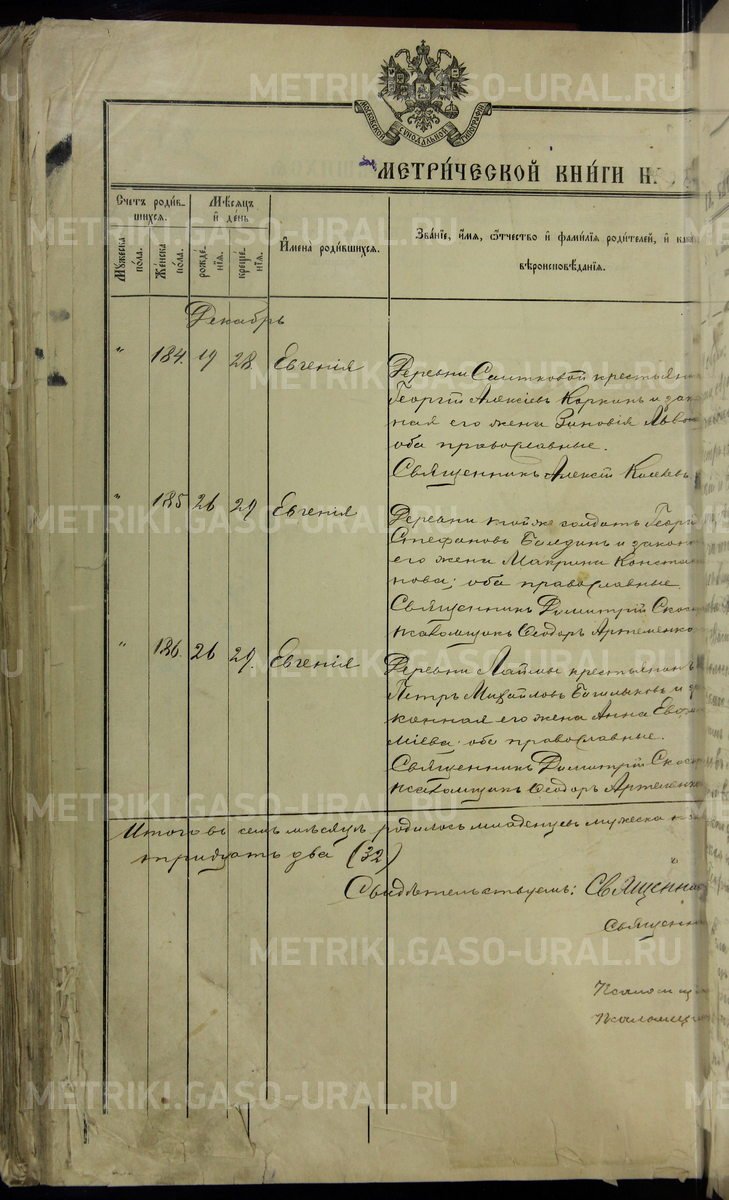 METRIKI.GASO-URAL.RU
МОСКОВСКОЙ СѴНОДАЛЬНОЙ ТИПОГРАФІИ
МЕТРИ́ЧЕСКОЙ КНИ́ГИ Н
Счетъ роди́вшихся.
Му́жеска по́ла.
Же́нска по́ла.
Мѣ́сяцъ и҆ де́нь
рожде́нїѧ.
креще́нїѧ.
И҆мена̀ роди́вшихся.
Зва́нїе, и҆́мѧ, ѻ҆́тчество и҆ фами́лїѧ роди́телей, и҆ как
вѣроисповѣ́данїѧ.
Декабрь
" 184. 19 28. Евгенія
Деревни крестьянин
Георгій Алексіевъ Коркинъ и зак
ная его жена Зиновія Львов
оба православные.
Священникъ Алексій
" 185 26 29. Евгенія
Деревни той же солдатъ Георг
Стефановъ Балдинъ и закон
его жена Макрина Констан
нова; оба православные.
Священникъ Димитрій Скос
псаломщикъ Ѳеодоръ Артеменко
" 186. 26 29. Евгенія
Деревни крестьянинъ
Петръ Михайловъ и за
конная его жена Анна Евфи
міева; оба православные.
Священникъ Димитрій Скос
псаломщикъ Ѳеодоръ Артеменко
Итого въ семъ мѣсяцѣ родилось младенцевъ мужеска
тридцать два (32)
Свидѣтельствуемъ: Священник
Священни
Псаломщи
Псаломщи